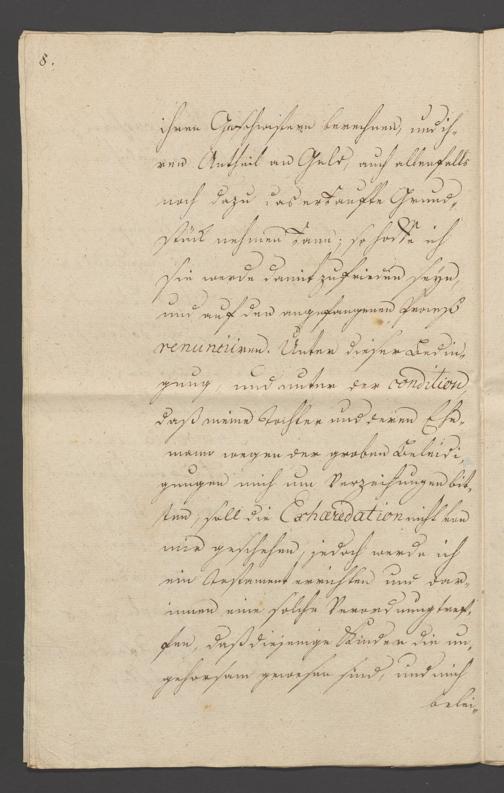 8.
ihren Geschwistern berechnen, und ih-
ren Antheil an Geld, auch allenfalls
noch dazu das erkauffte Grund-
stück nehmen kann; so hoffe ich
sie werde damit zufrieden seyn,
und auf den angefangenen Proceß
renunciiren. Unter dieser Bedin-
gung, und unter der condition,
daß meine Tochter und deren Ehe-
mann wegen der groben Beleidi-
gungen mich um Verzeihungen bit-
ten, soll die Exhæredation nicht von
mir geschehen, jedoch werde ich
ein Testament errichten und dar-
innen eine solche Verordnung tref-
fen, daß diejenige Kinder die un-
gehorsam gewesen sind, und mich
belei-